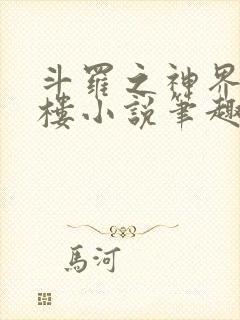 斗羅之神界
樓小說筆趣
馬河